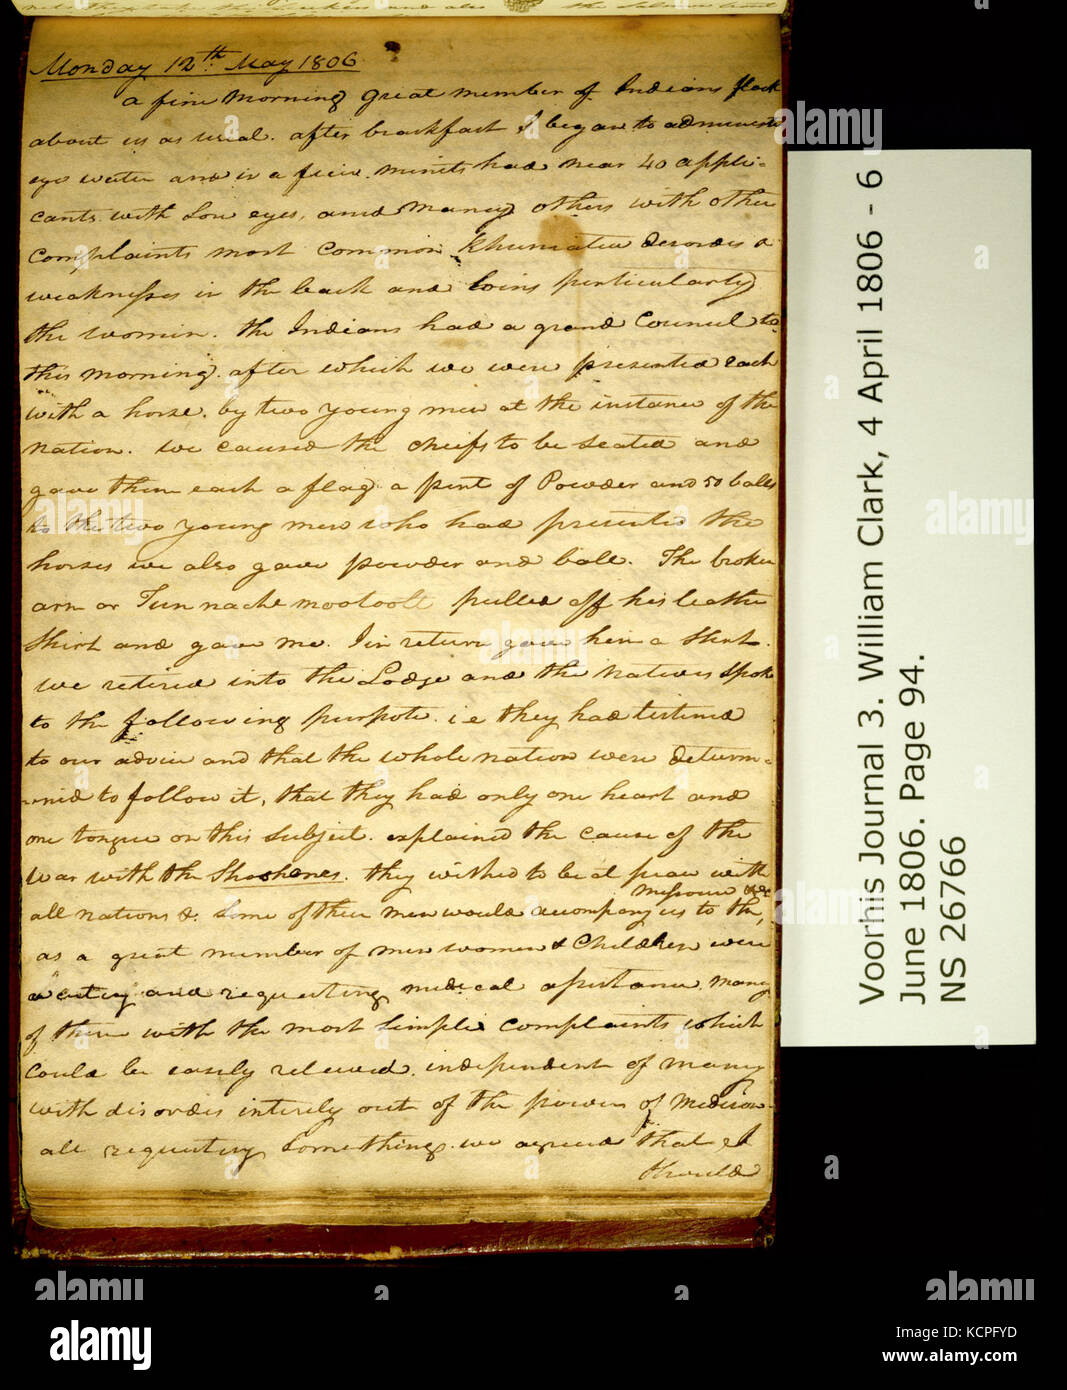 Monday 12th May 1806
a fine Morning great number of Indians flock
about us as usial. after brackfast I began to administer
eye water and in a fiew minits had near 40 appli-
cants with Sore eyes, and maney others with other
complaints most common Rhumatic disorders &
weaknesses in the back and loins perticularly
the womin. the Indians had a grand Council
this morning. after which we were presented each
with a horse. by two young men at the instance of the
nation. we caused the chiefs to be seated and
gave them each a flag a pint of Powder and 50 balls
to the two young men who had presented the
horses we also gave powder and ball. The broken
arm or Tun nache mootoolt pulled off his leather
Shirt and gave me. I in return gave him a Shirt.
we retired into the Lodge and the natives Spoke
to the following purpote. i.e they had listened
to our advice and that the whole nation were determ-
-ined to follow it, that they had only one heart and
one tongue on this Subject. explained the cause of the
War with the Shoshones. they wished to be at peace with
missouri &c &c
all nations &c Some of their men would accompany us to the,
as a great number of men women & Children were
waiting and requesting medical assistance. many
of them with the most Simple complaints which
could be easily releived. independent of many
with disorders intirely out of the power of Medison
all requesting Something. we agreed that I
Should
Voorhis Journal 3. William Clark, 4 April 1806 - 6
June 1806. Page 94.
NS 26766
alamy
alamy
Image ID: KCPFYD
www.alamy.com